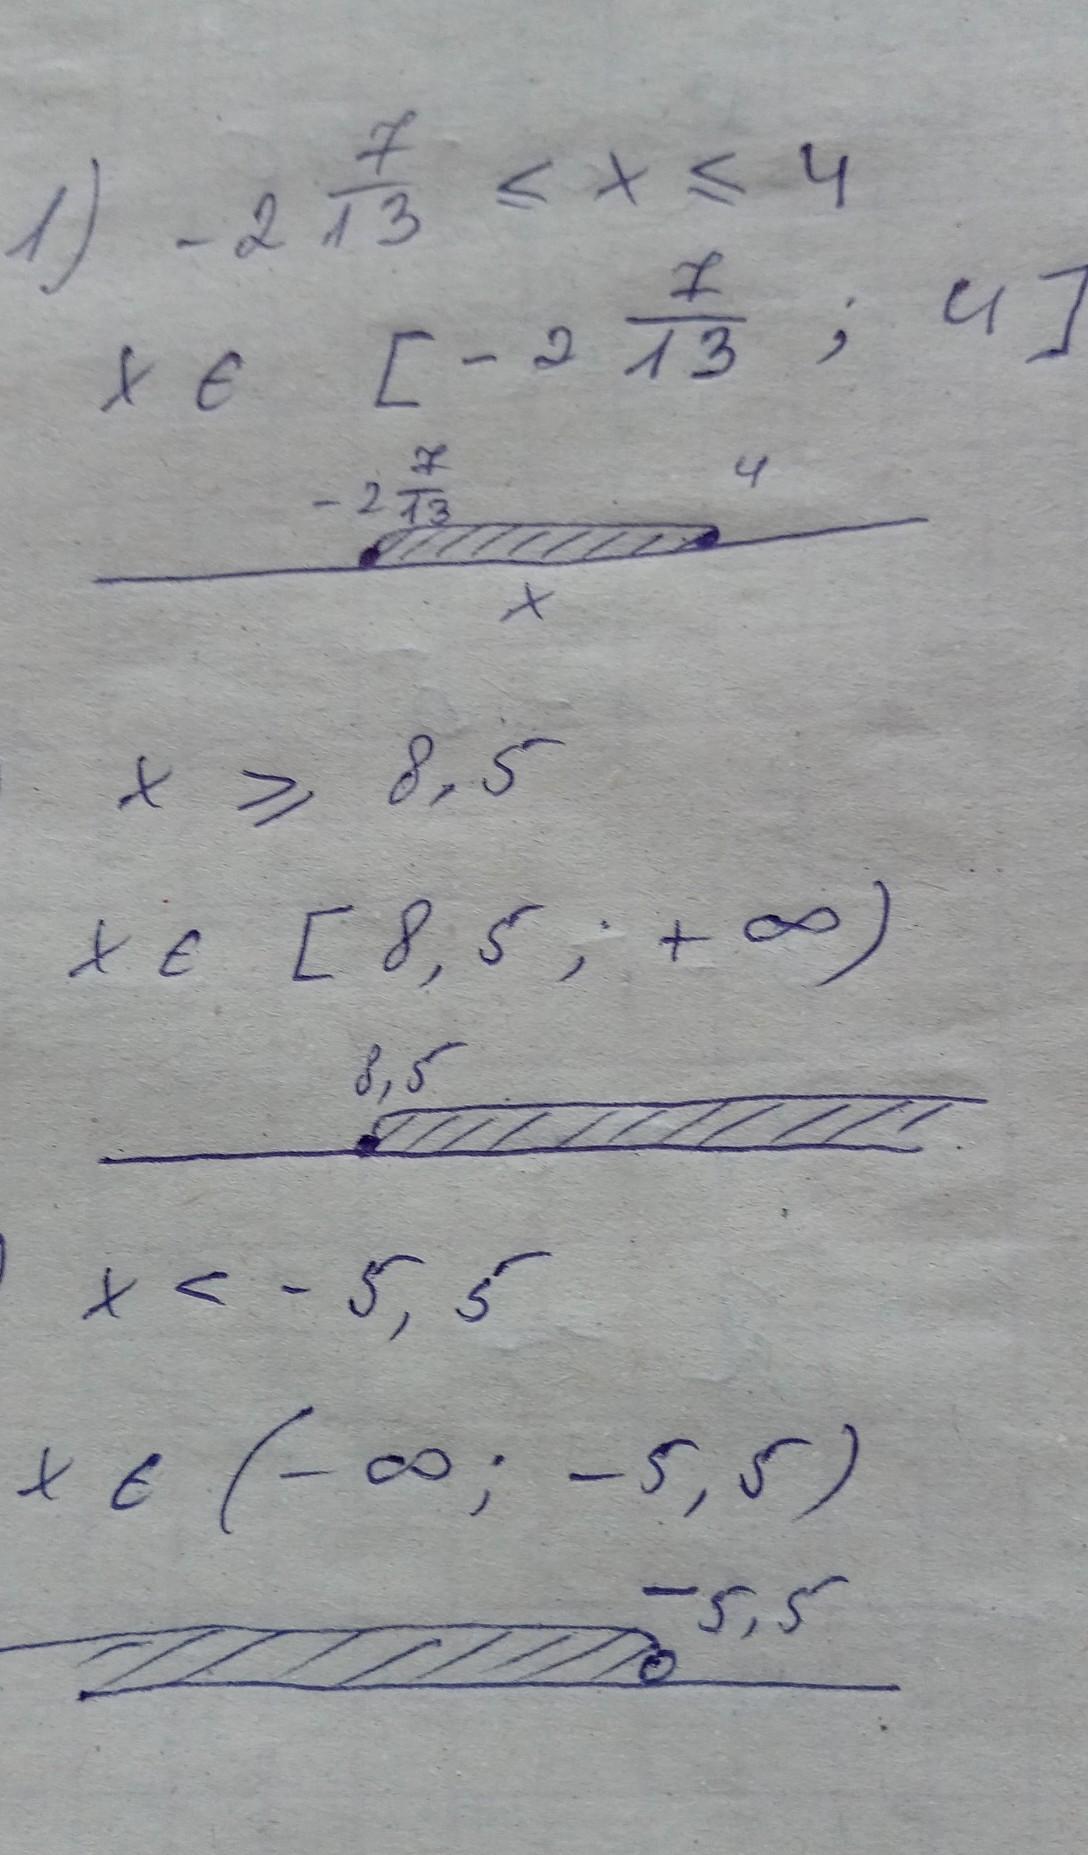 1) -2 7/13 ≤ x ≤ 4
x ∈ [-2 7/13 ; 4]
-2 7/13 4
x
x ⩾ 8,5
x ∈ [8,5 ; +∞)
8,5
) x < -5,5
x ∈ (-∞; -5,5)
-5,5